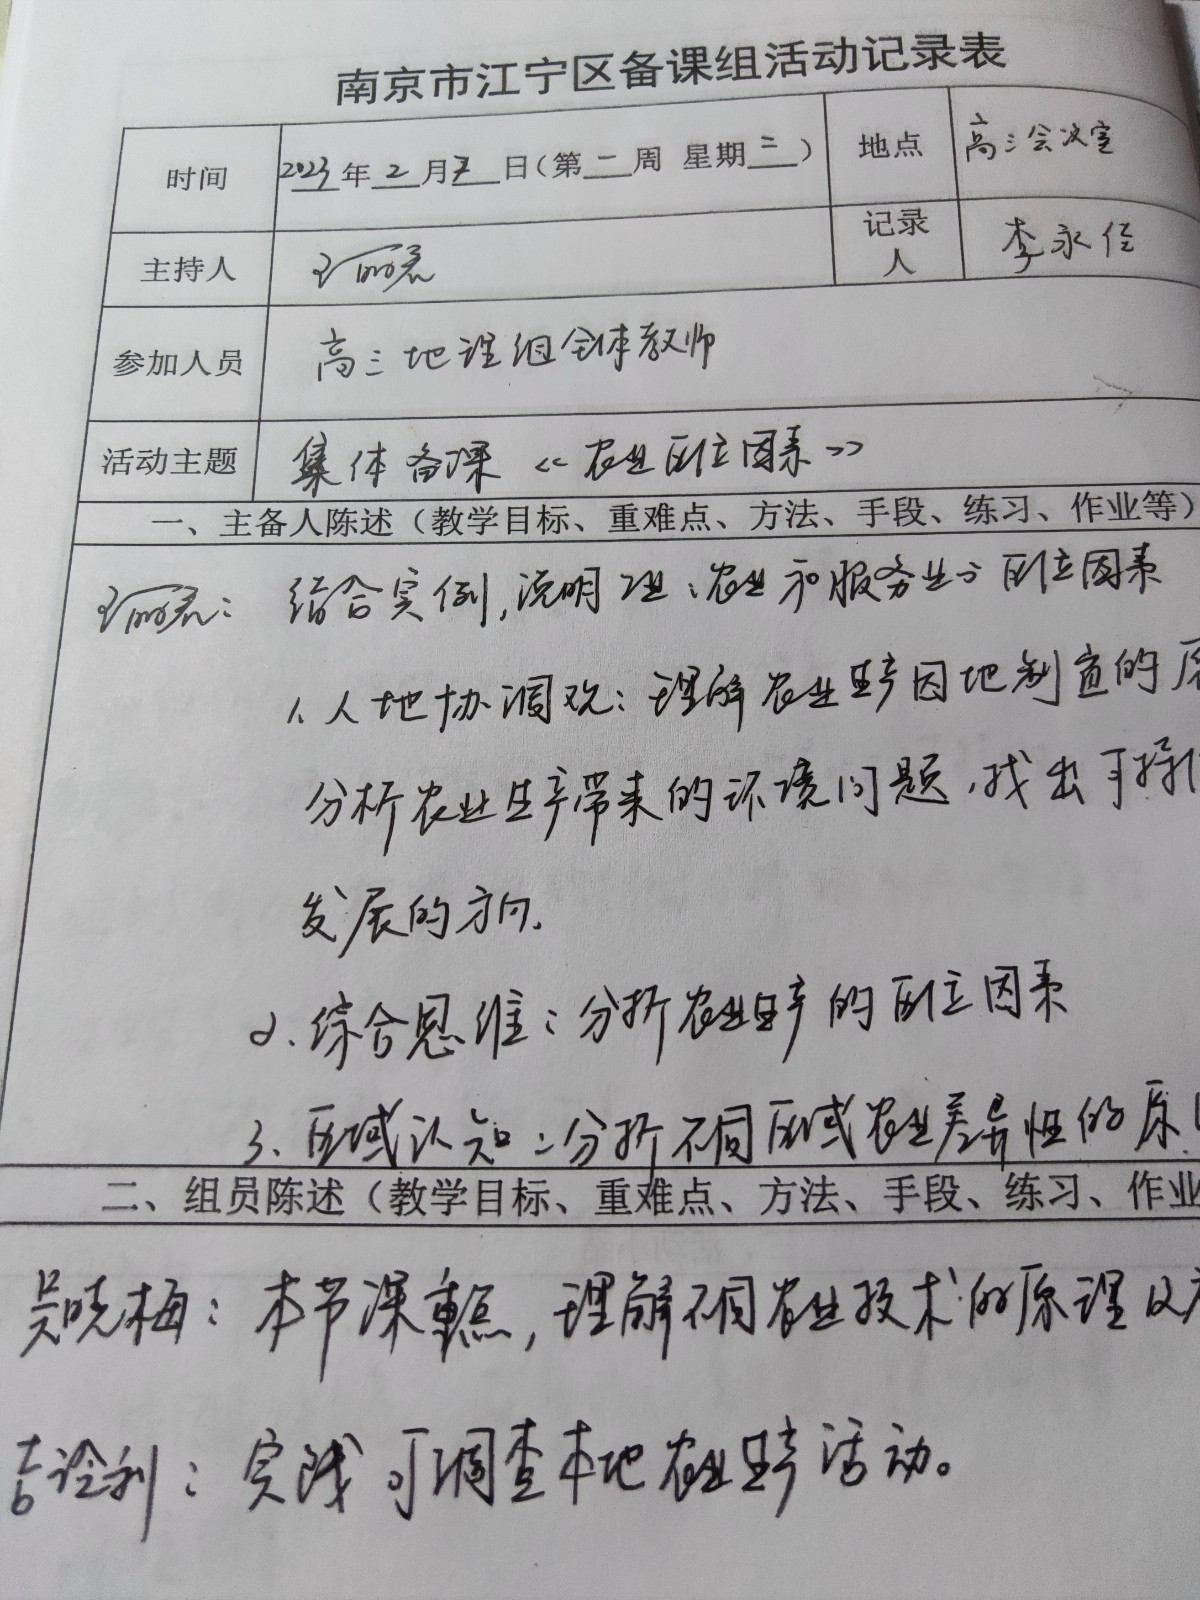 南京市江宁区备课组活动记录表
时间 2023年2月7日(第二周 星期二) 地点 高三会议室
主持人 记录人 李永佳
参加人员 高三地理组全体教师
活动主题 集体备课《农业区位因素》
一、主备人陈述（教学目标、重难点、方法、手段、练习、作业等）
结合实例,说明工业、农业和服务业的区位因素
1、人地协调观：理解农业生产因地制宜的原
分析农业生产带来的环境问题,找出可持
发展的方向.
2、综合思维：分析农业生产的区位因素
3、区域认知：分析不同区域农业差异性的原
二、组员陈述（教学目标、重难点、方法、手段、练习、作业
吴晓梅：本节课重点,理解不同农业技术的原理及
实践可调查本地农业生产活动。